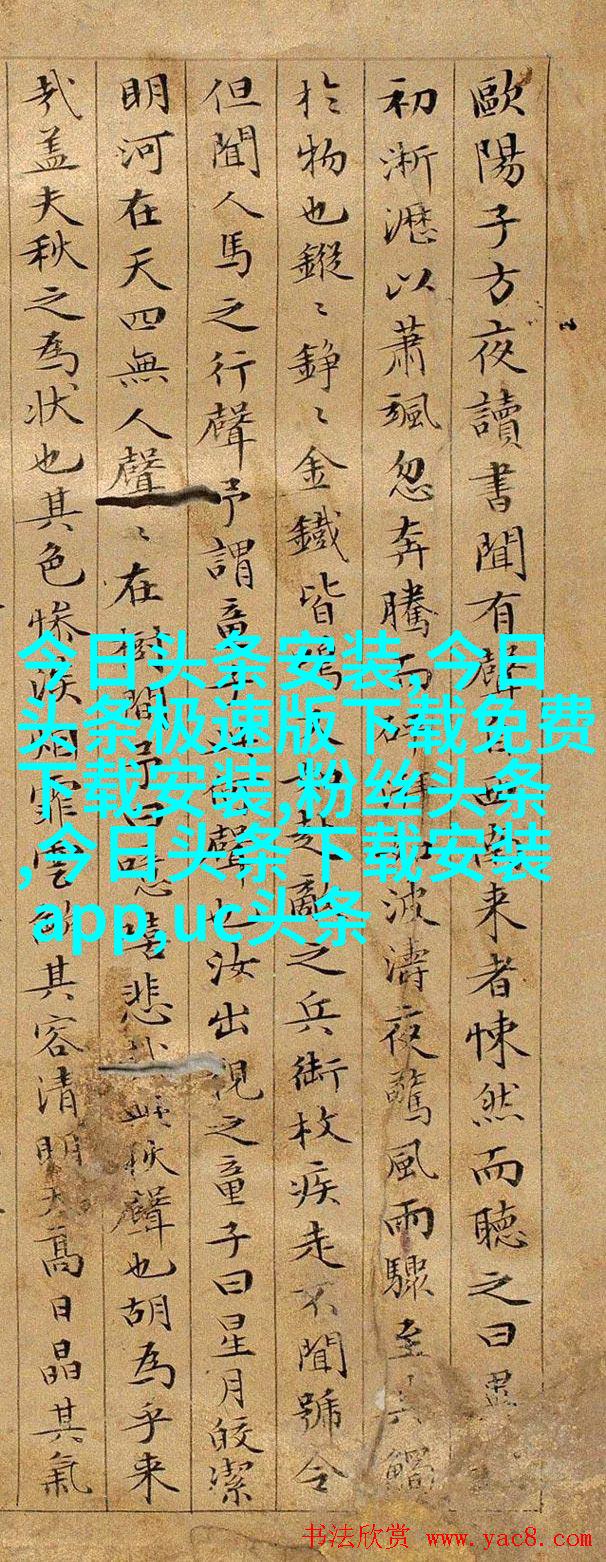 歐陽子方夜讀書聞有聲自西南來者悚然而聽之曰異
初淅瀝以蕭颯忽奔騰而砰湃如波濤夜驚風雨驟至其觸
扵物也鏦〻錚〻金鐵皆鳴又如赴敵之兵銜枚疾走不聞號令
但聞人馬之行聲予謂童子此何聲也汝出視之童子曰星月皎潔
明河在天四無人聲〻在樹間予曰噫嘻悲哉此秋聲也胡為乎来
哉盖夫秋之為状也其色惨淡烟霏雲歛其容清明天高日晶其氣
今日头条安装,今日
头条极速版下载免费
下载安装,粉丝头条
,今日头条下载安装
app,uc头条
书法欣赏 www.yac8.com